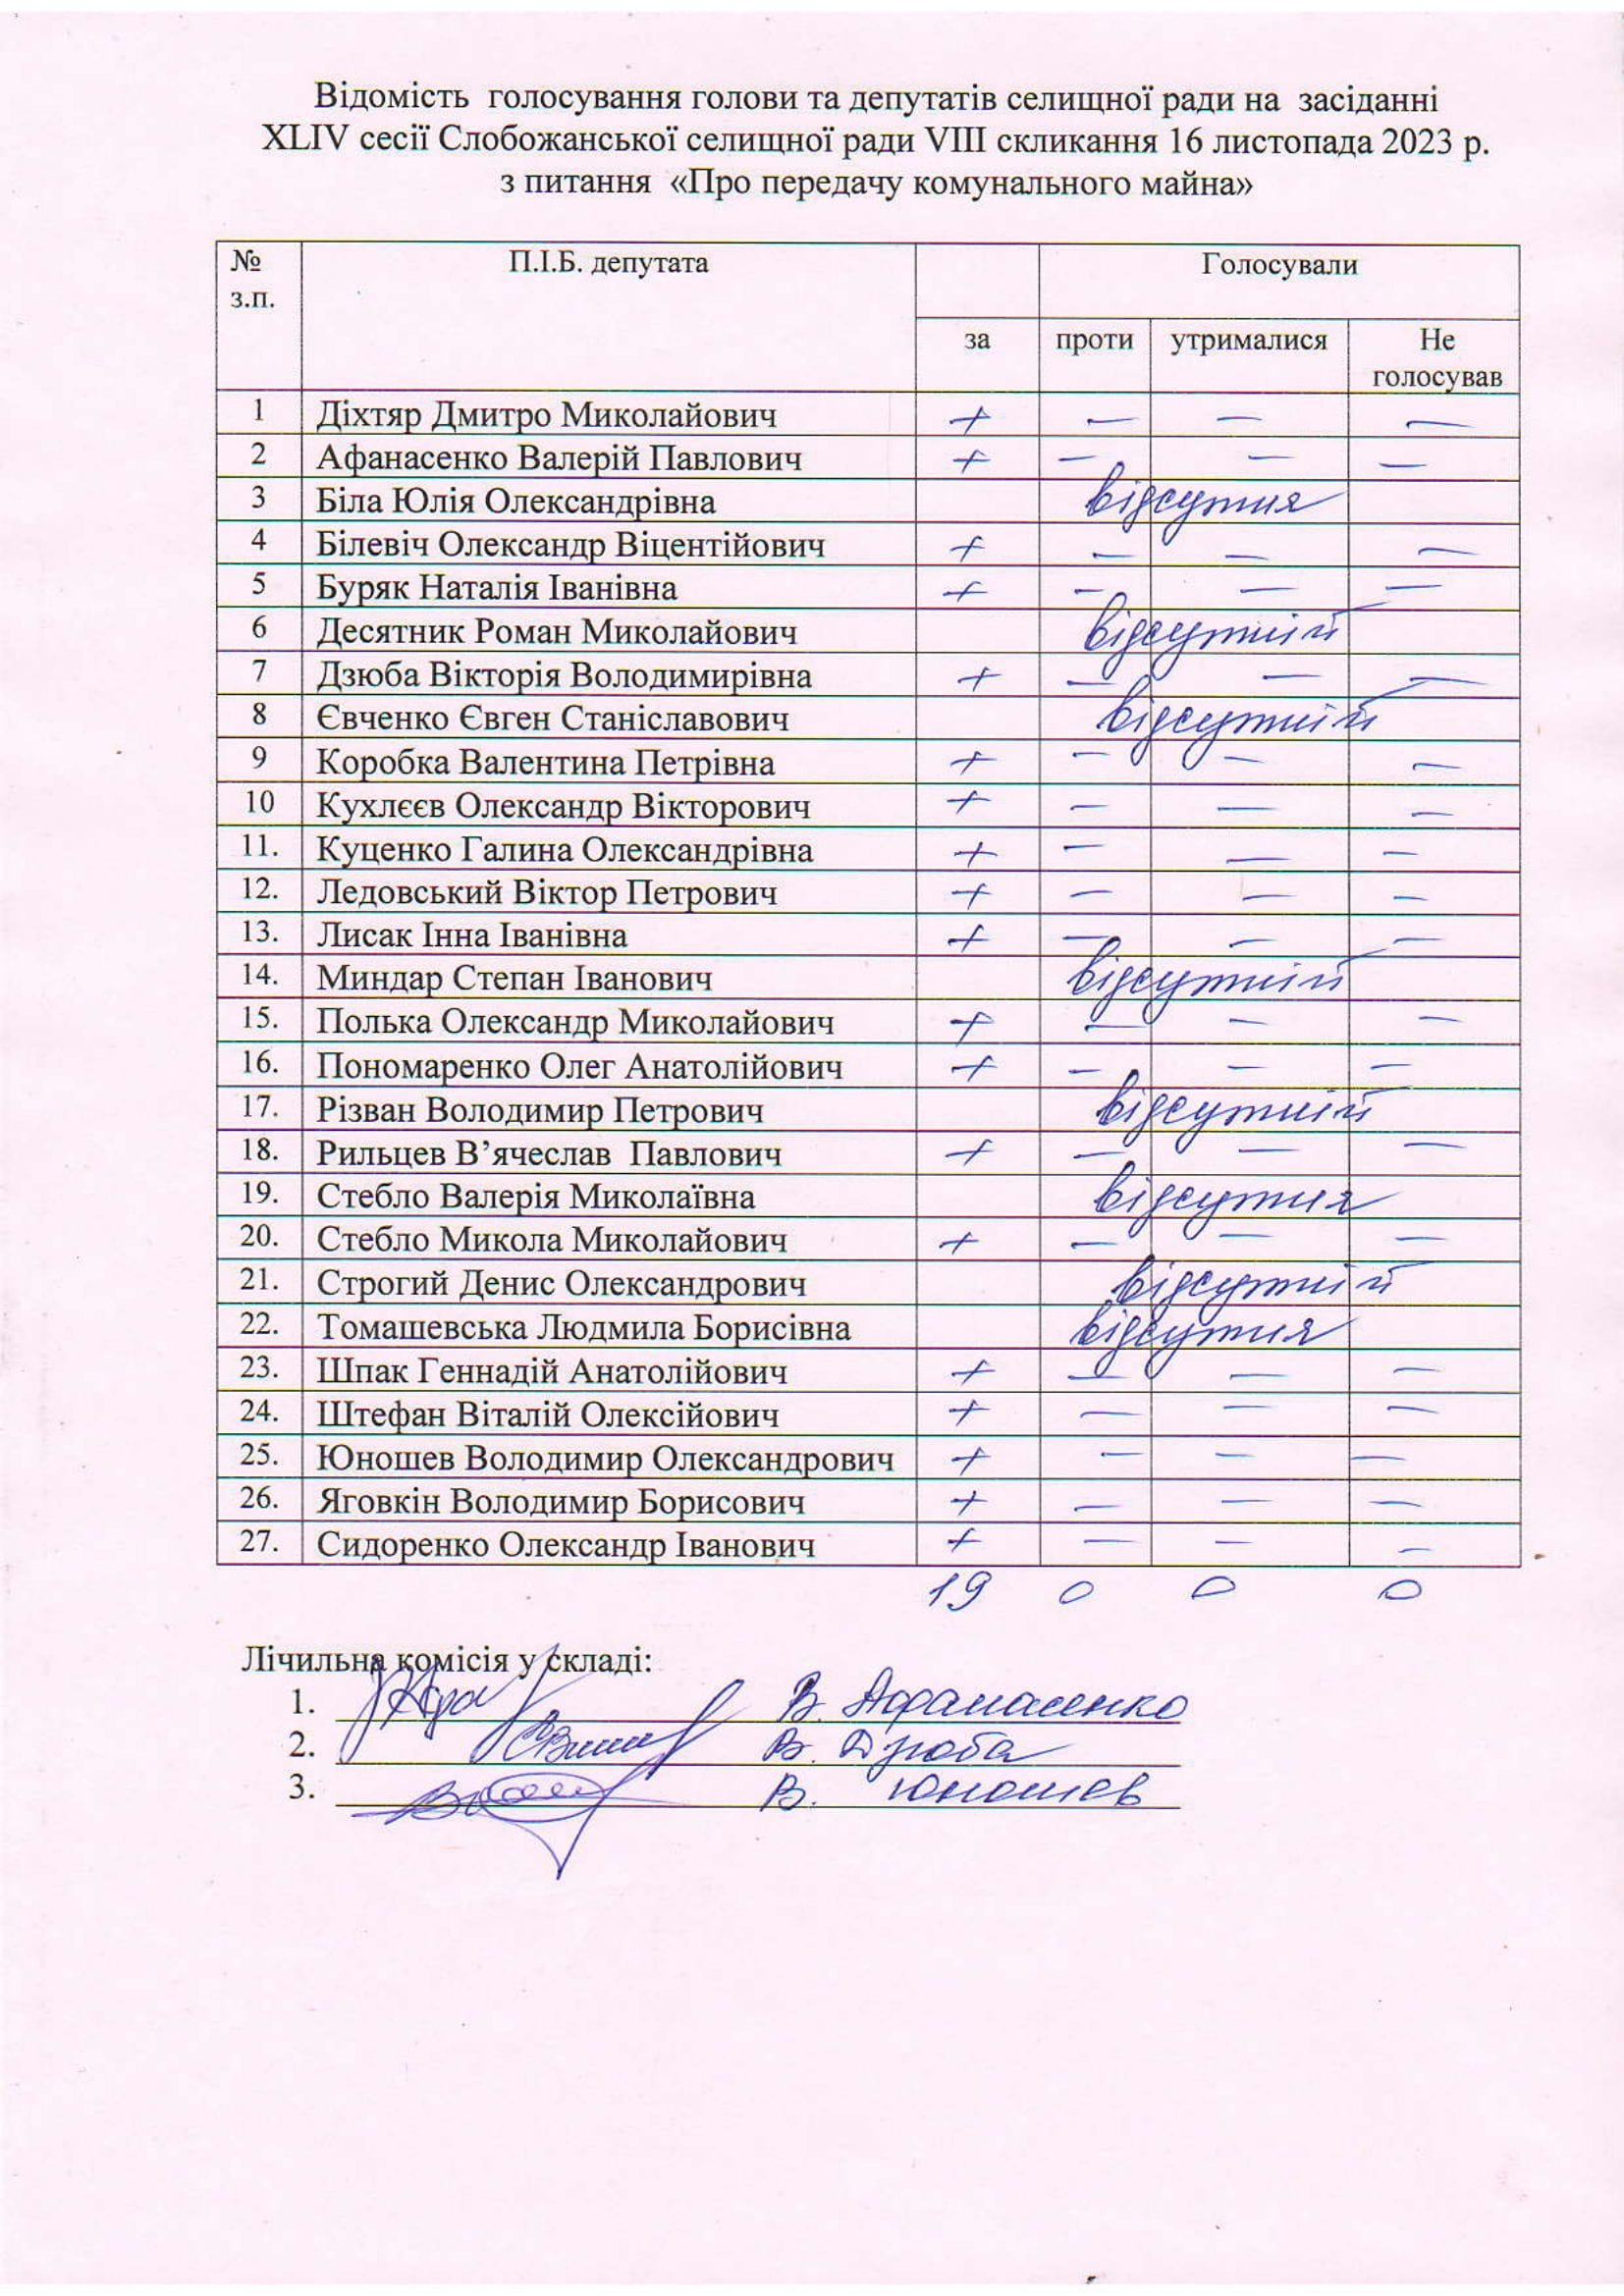 Відомість голосування голови та депутатів селищної ради на засіданні
XLIV сесії Слобожанської селищної ради VIII скликання 16 листопада 2023 р.
з питання «Про передачу комунального майна»
№ з.п. П.І.Б. депутата Голосували
за проти утрималися Не голосував
1 Діхтяр Дмитро Миколайович + — — —
2 Афанасенко Валерій Павлович + — — —
3 Біла Юлія Олександрівна відсутня
4 Білевіч Олександр Віцентійович + — — —
5 Буряк Наталія Іванівна + — — —
6 Десятник Роман Миколайович відсутній
7 Дзюба Вікторія Володимирівна + — — —
8 Євченко Євген Станіславович відсутній
9 Коробка Валентина Петрівна + — — —
10 Кухлєєв Олександр Вікторович + — — —
11. Куценко Галина Олександрівна + — — —
12. Ледовський Віктор Петрович + — — —
13. Лисак Інна Іванівна + — — —
14. Миндар Степан Іванович відсутній
15. Полька Олександр Миколайович + — — —
16. Пономаренко Олег Анатолійович + — — —
17. Різван Володимир Петрович відсутній
18. Рильцев В’ячеслав Павлович + — — —
19. Стебло Валерія Миколаївна відсутня
20. Стебло Микола Миколайович + — — —
21. Строгий Денис Олександрович відсутній
22. Томашевська Людмила Борисівна відсутня
23. Шпак Геннадій Анатолійович + — — —
24. Штефан Віталій Олексійович + — — —
25. Юношев Володимир Олександрович + — — —
26. Яговкін Володимир Борисович + — — —
27. Сидоренко Олександр Іванович + — — —
19 0 0 0
Лічильна комісія у складі:
1. В. Афанасенко
2. В. Дзюба
3. В. Юношев